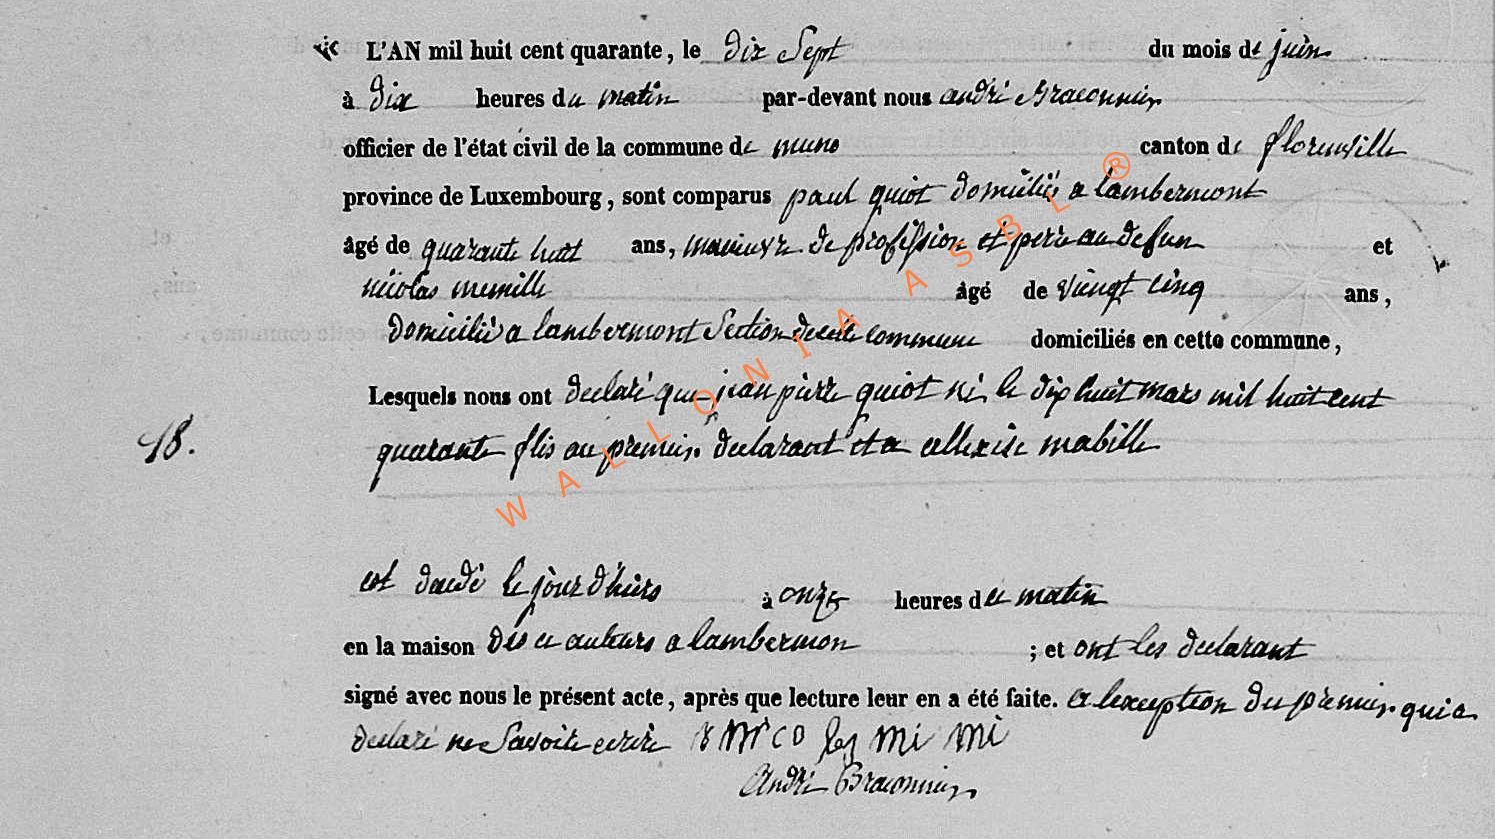 L'AN mil huit cent quarante, le dix Sept du mois de juin
à dix heures du matin par-devant nous andré Braconnier
officier de l'état civil de la commune de muno canton de florenville
province de Luxembourg, sont comparus paul quiot domicilié a lambermont
âgé de quarante huit ans, de profession et pere au defun et
nicolas âgé de viengt cinq ans,
domicilié a lambermont Section commune domiciliés en cette commune,
Lesquels nous ont declaré que jean pierre quiot né le dix huit mars mil huit cent
18. quarante flis au premier declarant et a mabille
est le jour d'hiers à onze heures du matin
en la maison a lambermon ; et ont les declarant
signé avec nous le présent acte, après que lecture leur en a été faite. a lexception du premier qui a
declaré ne Savoir ecrire
André Braconnier
WALLONIA ASBL ®